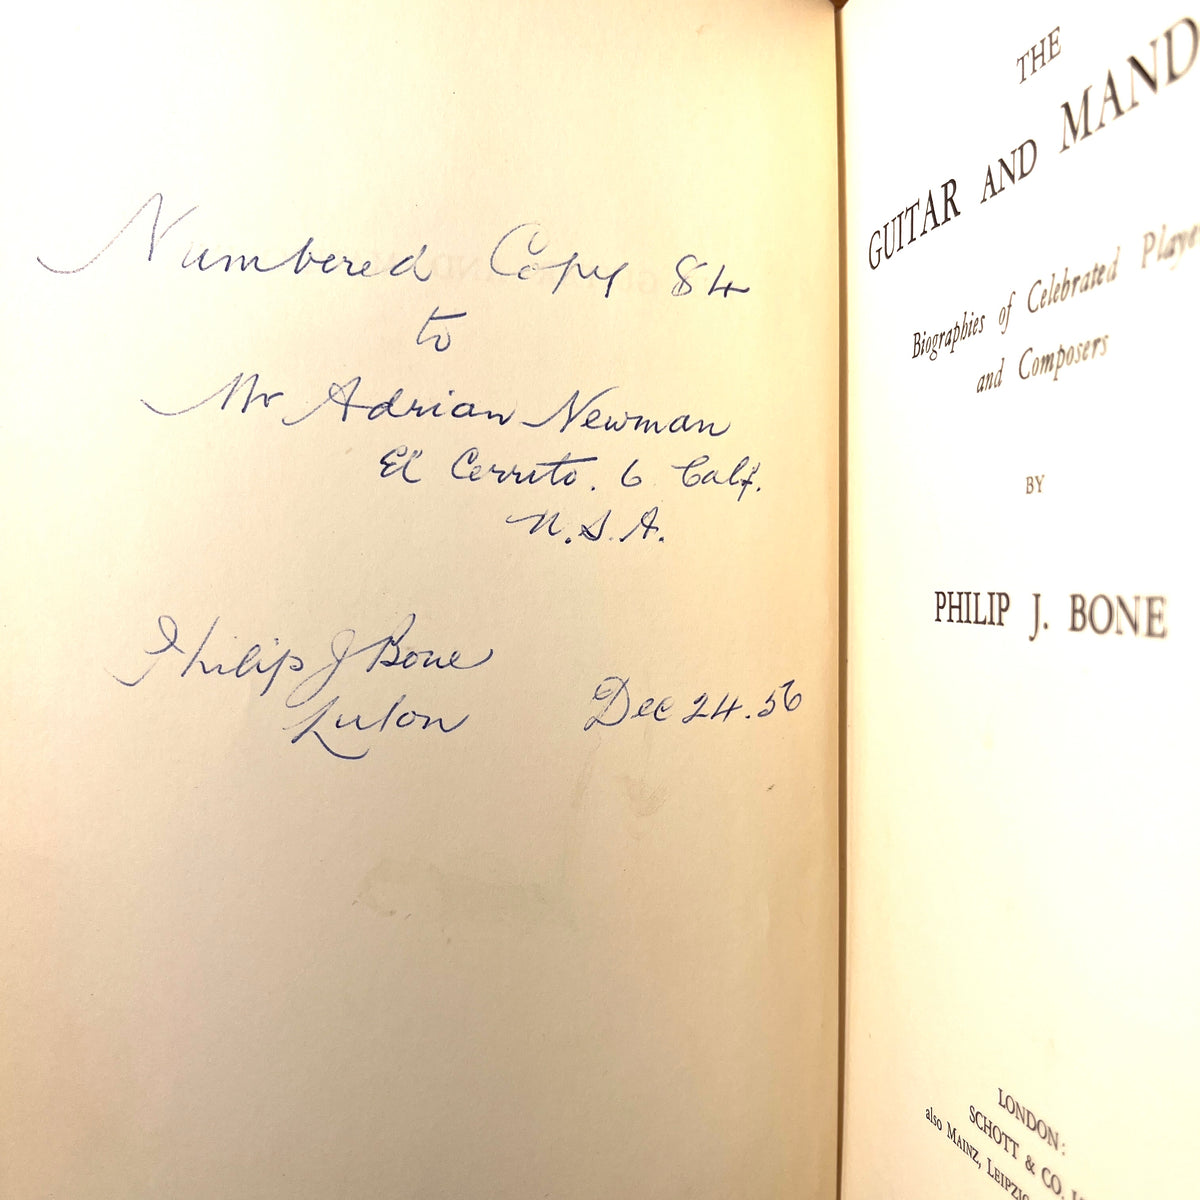 Numbered Copy 84
to
Mr Adrian Newman
El Cerrito. 6 Calf.
U.S.A.
Philip J Bone
Luton Dec 24.56
THE
GUITAR AND MAND
Biographies of Celebrated Playe
and Composers
BY
PHILIP J. BONE
LONDON:
SCHOTT & CO.
also MAINZ, LEIPZIG